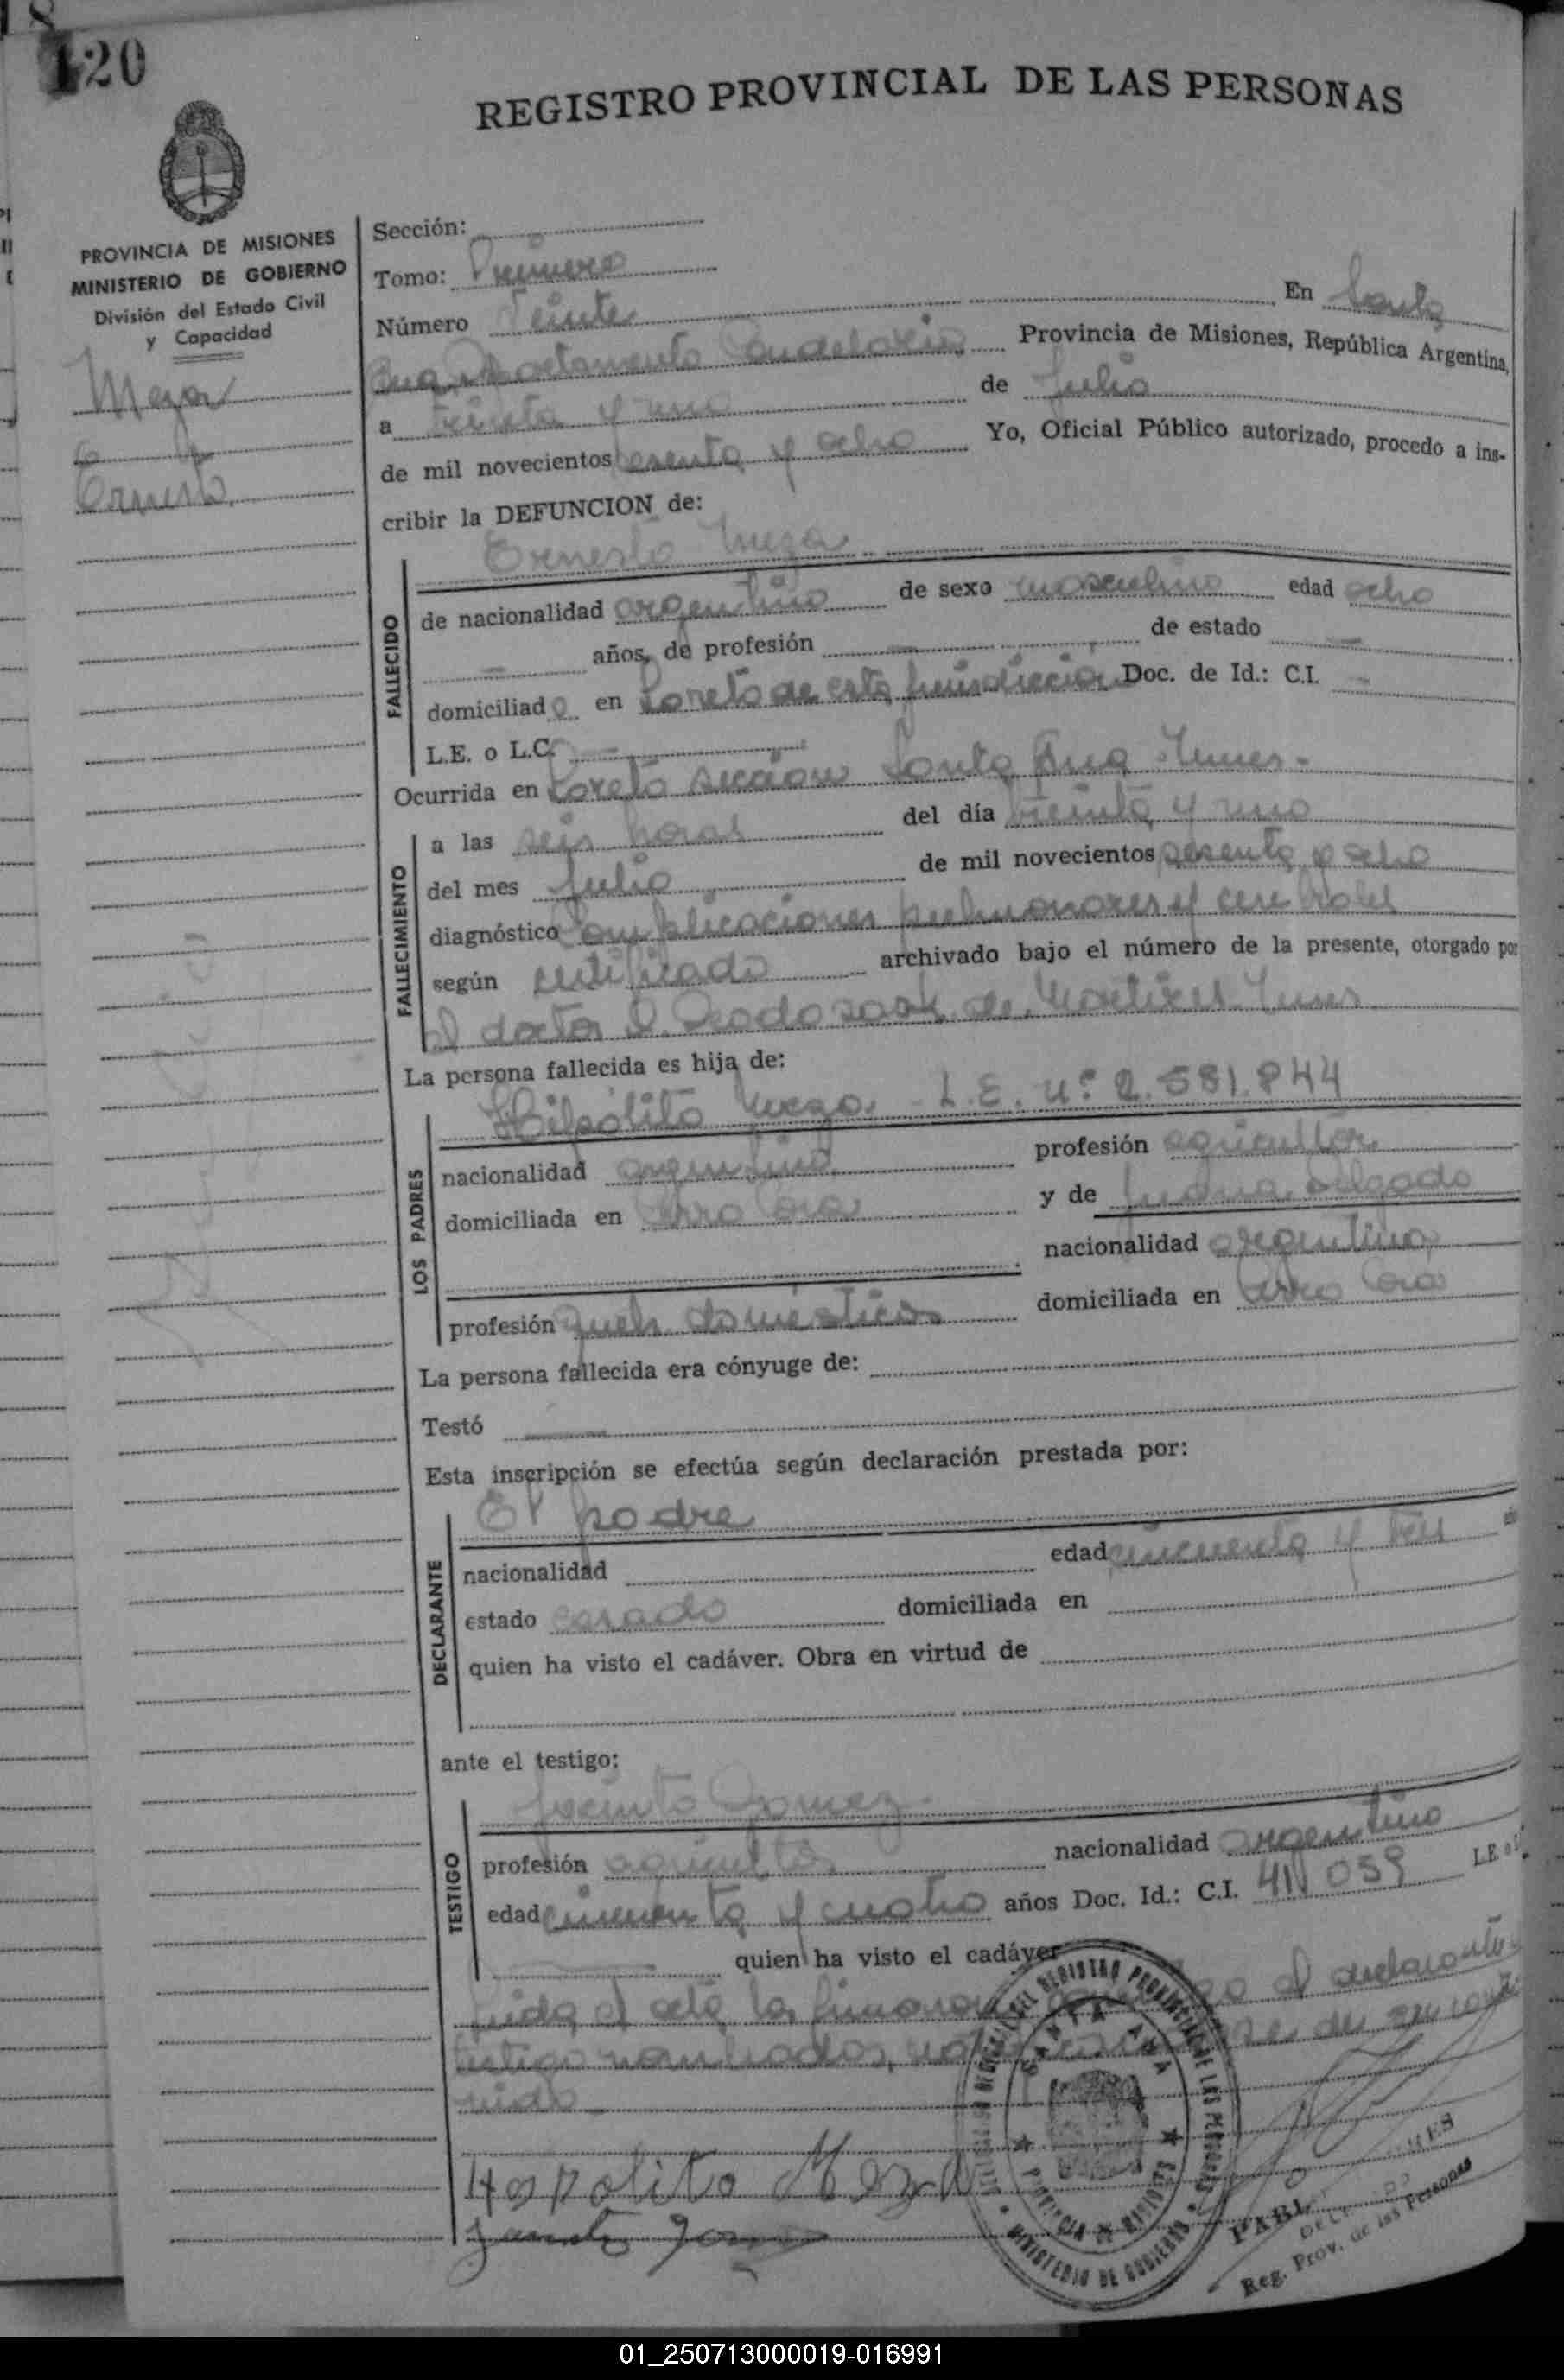 120
REGISTRO PROVINCIAL DE LAS PERSONAS
PROVINCIA DE MISIONES
MINISTERIO DE GOBIERNO
División del Estado Civil
y Capacidad
Meza
Ernesto
Sección:
Tomo: Primero
Número Veinte En Santa
Ana, Departamento Candelaria Provincia de Misiones, República Argentina,
a treinta y uno de Julio
de mil novecientos sesenta y ocho Yo, Oficial Público autorizado, procedo a ins-
cribir la DEFUNCION de:
Ernesto Meza
FALLECIDO
de nacionalidad argentino de sexo masculino edad ocho
años, de profesión — de estado —
domiciliado en Loreto de esta jurisdicción Doc. de Id.: C.I. —
L.E. o L.C. —
Ocurrida en Loreto sección Santa Ana
FALLECIMIENTO
a las seis horas del día treinta y uno
del mes Julio de mil novecientos sesenta y ocho
diagnóstico Complicaciones pulmonares y cerebrales
según certificado archivado bajo el número de la presente, otorgado por
el doctor de Martires
La persona fallecida es hija de:
Hipólito Meza. - L.E. nº 2.581.844
LOS PADRES
nacionalidad argentino profesión agricultor
domiciliada en Cerro Corá y de Juana Delgado
nacionalidad argentina
profesión queh. domésticos domiciliada en Cerro Corá
La persona fallecida era cónyuge de:
Testó —
Esta inscripción se efectúa según declaración prestada por:
El padre
DECLARANTE
nacionalidad edad cincuenta y tres
estado casado domiciliada en
quien ha visto el cadáver. Obra en virtud de
ante el testigo:
Jacinto Gomez
TESTIGO
profesión agricultor nacionalidad argentino
edad cincuenta y cuatro años Doc. Id.: C.I. 059 L.E. o
quien ha visto el cadáver
Leida el acta, la firmaron el declarante
testigo nombrados,
Hospolito Meza
REGISTRO PROVINCIAL DE LAS PERSONAS
SANTA ANA
PROVINCIA DE MISIONES
MINISTERIO DE GOBIERNO
Reg. Prov. de las Personas
01_250713000019-016991